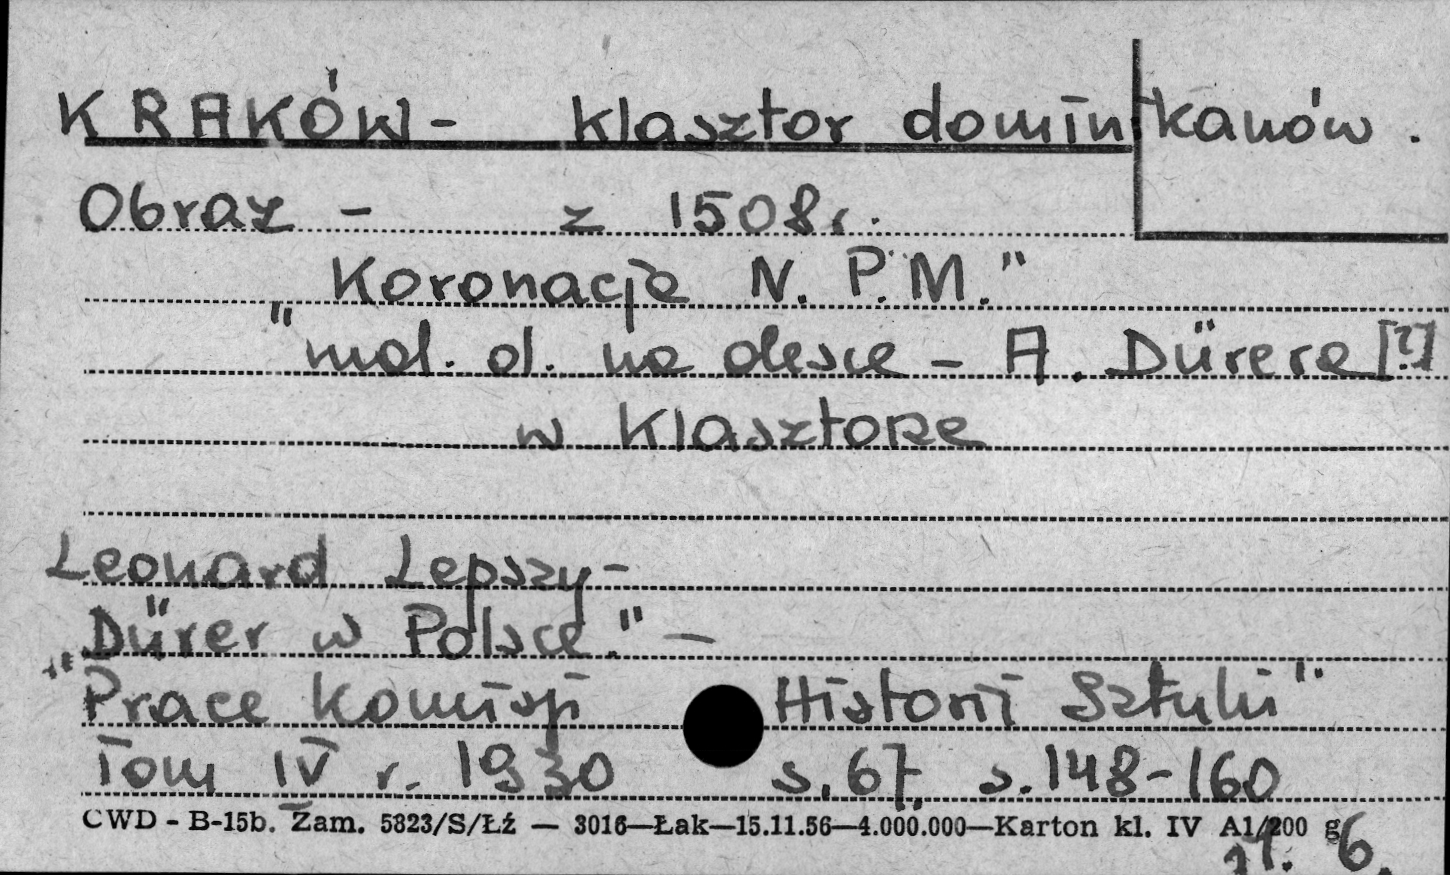 KRAKÓW - klasztor dominikanów.
Obraz - z 1508 r.
"Koronacja N. P. M."
mal. ol. na desce - A. Dürera [?]
w klasztorze
Leonard Lepszy -
"Dürer w Polsce." -
"Prace Komisji Historii Sztuki"
Tom IV r. 1930 s. 67, s. 148-160
CWD - B-15b. Zam. 5823/S/Łź — 3016—Łak—15.11.56—4.000.000—Karton kl. IV A1/200 g